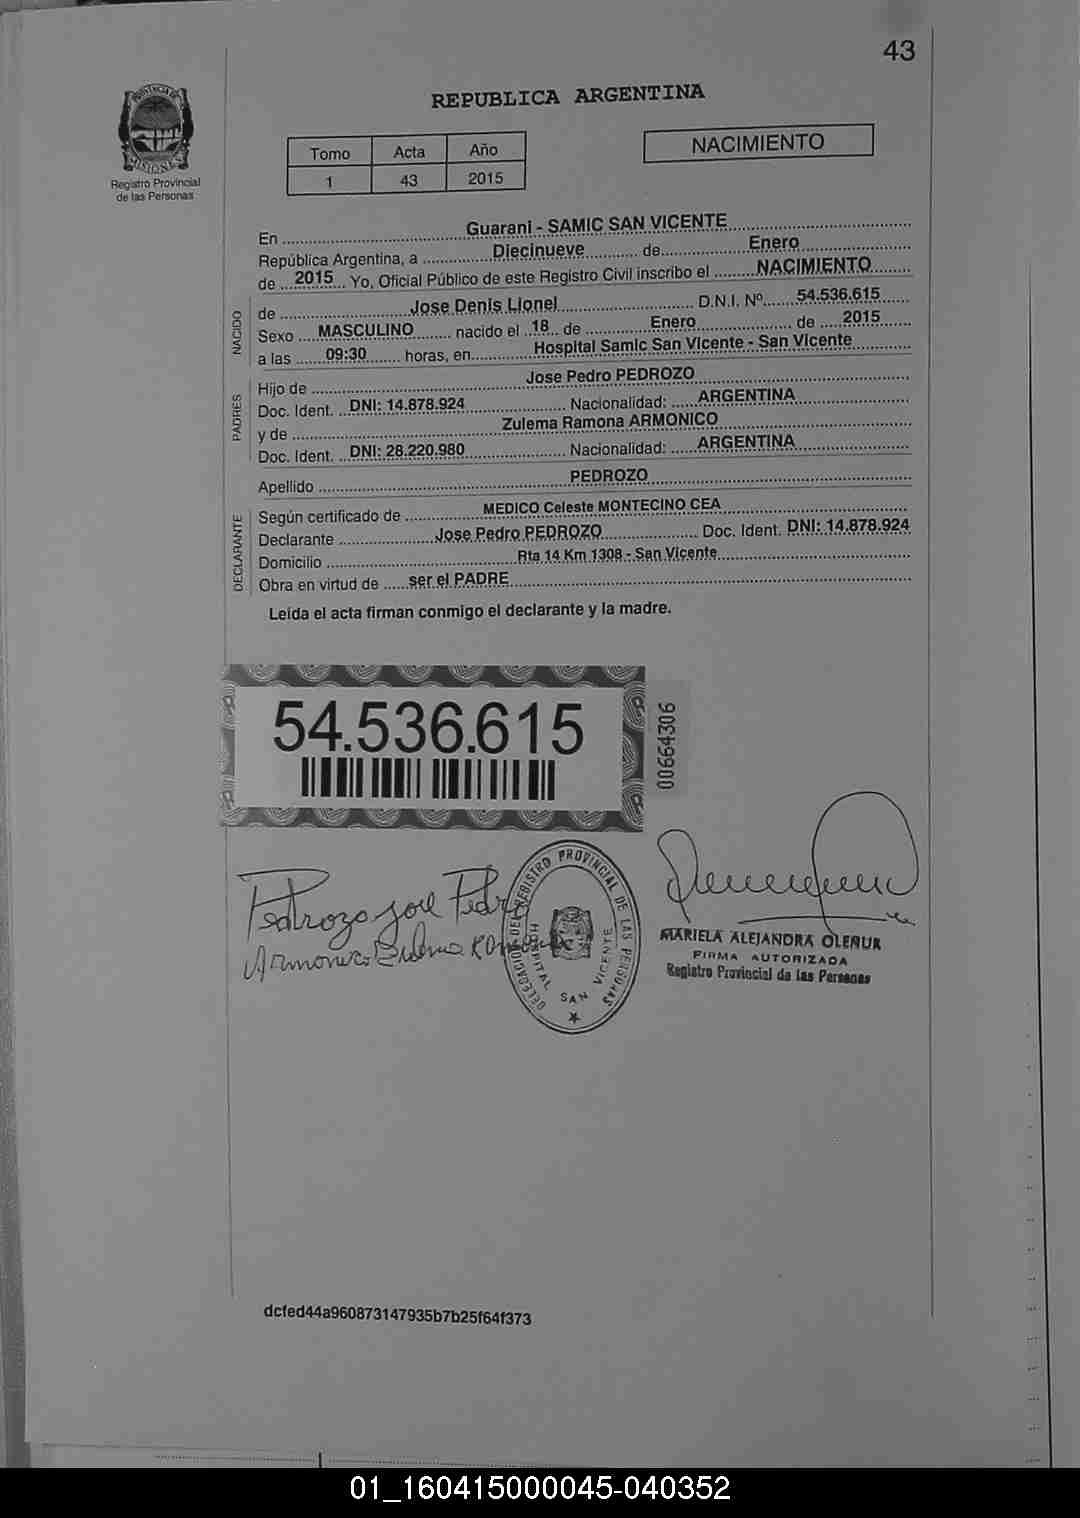 43
PROVINCIA DE
MISIONES
Registro Provincial
de las Personas
REPUBLICA ARGENTINA
Tomo Acta Año
1 43 2015
NACIMIENTO
En Guarani - SAMIC SAN VICENTE
República Argentina, a Diecinueve de Enero
de 2015 Yo, Oficial Público de este Registro Civil inscribo el NACIMIENTO
NACIDO
de Jose Denis Lionel D.N.I. Nº 54.536.615
Sexo MASCULINO nacido el 18 de Enero de 2015
a las 09:30 horas, en Hospital Samic San Vicente - San Vicente
PADRES
Hijo de Jose Pedro PEDROZO
Doc. Ident. DNI: 14.878.924 Nacionalidad: ARGENTINA
y de Zulema Ramona ARMONICO
Doc. Ident. DNI: 28.220.980 Nacionalidad: ARGENTINA
Apellido PEDROZO
DECLARANTE
Según certificado de MEDICO Celeste MONTECINO CEA
Declarante Jose Pedro PEDROZO Doc. Ident. DNI: 14.878.924
Domicilio Rta 14 Km 1308 - San Vicente
Obra en virtud de ser el PADRE
Leída el acta firman conmigo el declarante y la madre.
54.536.615
00664306
Pedrozo José Pedro
Armonico Zulema Ramona
DELEGACION DEL REGISTRO PROVINCIAL DE LAS PERSONAS
HOSPITAL SAN VICENTE
MARIELA ALEJANDRA OLENUK
FIRMA AUTORIZADA
Registro Provincial de las Personas
dcfed44a960873147935b7b25f64f373
01_160415000045-040352